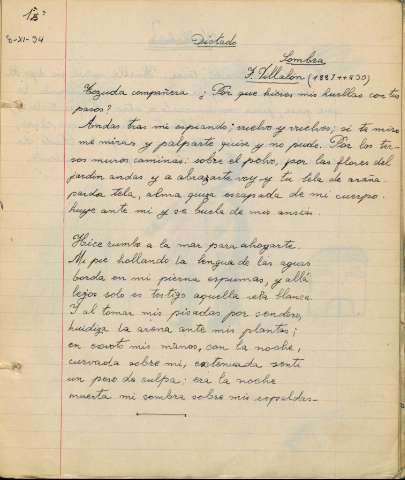 8-XI-94
Dictado
Sombra
F. Villalón (1881++930)
Tozuda compañera. ¿Por que hieres mis huellas con tus
pasos?
Andas tras mi espeando; vuelvo y vuelves; si te miro
me miras y palparte quise y no pude. Por los ter-
sos muros caminas: sobre el polvo, por las flores del
jardin andas y a abrazarte voy y tu tela de araña.
parda tela, alma quiza escapada de mi cuerpo.
huye ante mi y se burla de mis ansias.
Hice rumbo a la mar para ahogarte.
Mi pie hollando la lengua de las aguas
borda en mi pierna espumas, y allá
lejos solo es testigo aquella vela blanca.
Y al tomar mis pisadas por sendero,
huidiza la arena ante mis plantas;
en mis manos, con la noche,
curvada sobre mi, extenuada senti
un peso de culpa; era la noche
muerta mi sombra sobre mis espaldas.